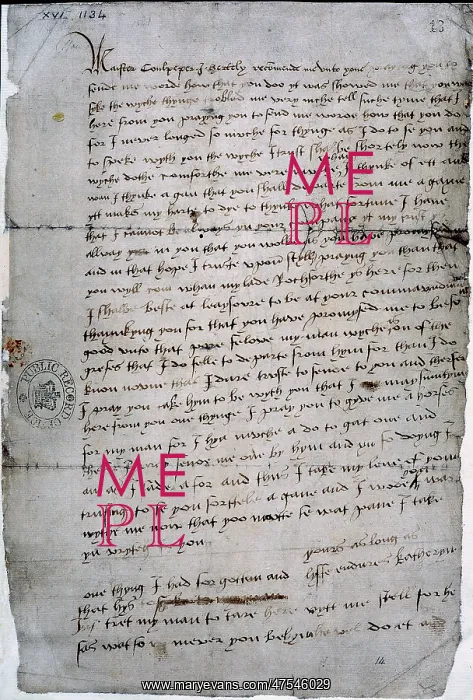 XVI. 1134
13
Maister Coulpeper I hertely recomende me unto youe praying you to
sende me worde how that you doo yt was showed me that you was
seke the wyche thynge trobled me very muche tell suche tyme that I
here from you praying you to send me worde how that you do
for I never longed so muche for thynge as I do to se you and
to speke wyth you the wyche I trust shal be shortely now the
wyche dothe comforthe me very much whan I thynke of ett and
wan I thynke agan that you shall departe from me agane
ytt makes my harte to dye to thynke what fortune I have
that I cannot be always yn your company yt my trust ys
allway in you that you wolbe as you have promysed me
and in that hope I truste upon styll praying you than that
you wyll com whan my lade Rochforthe ys here for then
I shalbe beste at leaysoure to be at your commandmant
thaynkyng you for that you have promysed me to be so
good unto that pore felowe my man wyche is on of the
grefes that I do felle to departe from hym for than I do
know noone that I dare truste to sende to you and therfor
I pray you take hym to be wyth you that I may sumtym
here from you one thynge I pray you to gyve me a horse
for my man for I hyd muche a do to gat one and
therfor I pray sende me one by hym and yn so doying I
am as I sade afor and thus I take my leve of you
trusting to se you shortele agane and I wode you was
wythe me now that you maitte se wat pane I take
yn wryteng to you
yours as long as
lyffe endures Katheryn
one thyng I had forgotten and
that hys to
my man to tare here wytt me styll for he
sas watsomever you bed hym he wel do et
14
PUBLIC RECORD OFFICE
ME
PL
ME
PL
www.maryevans.com/47546029